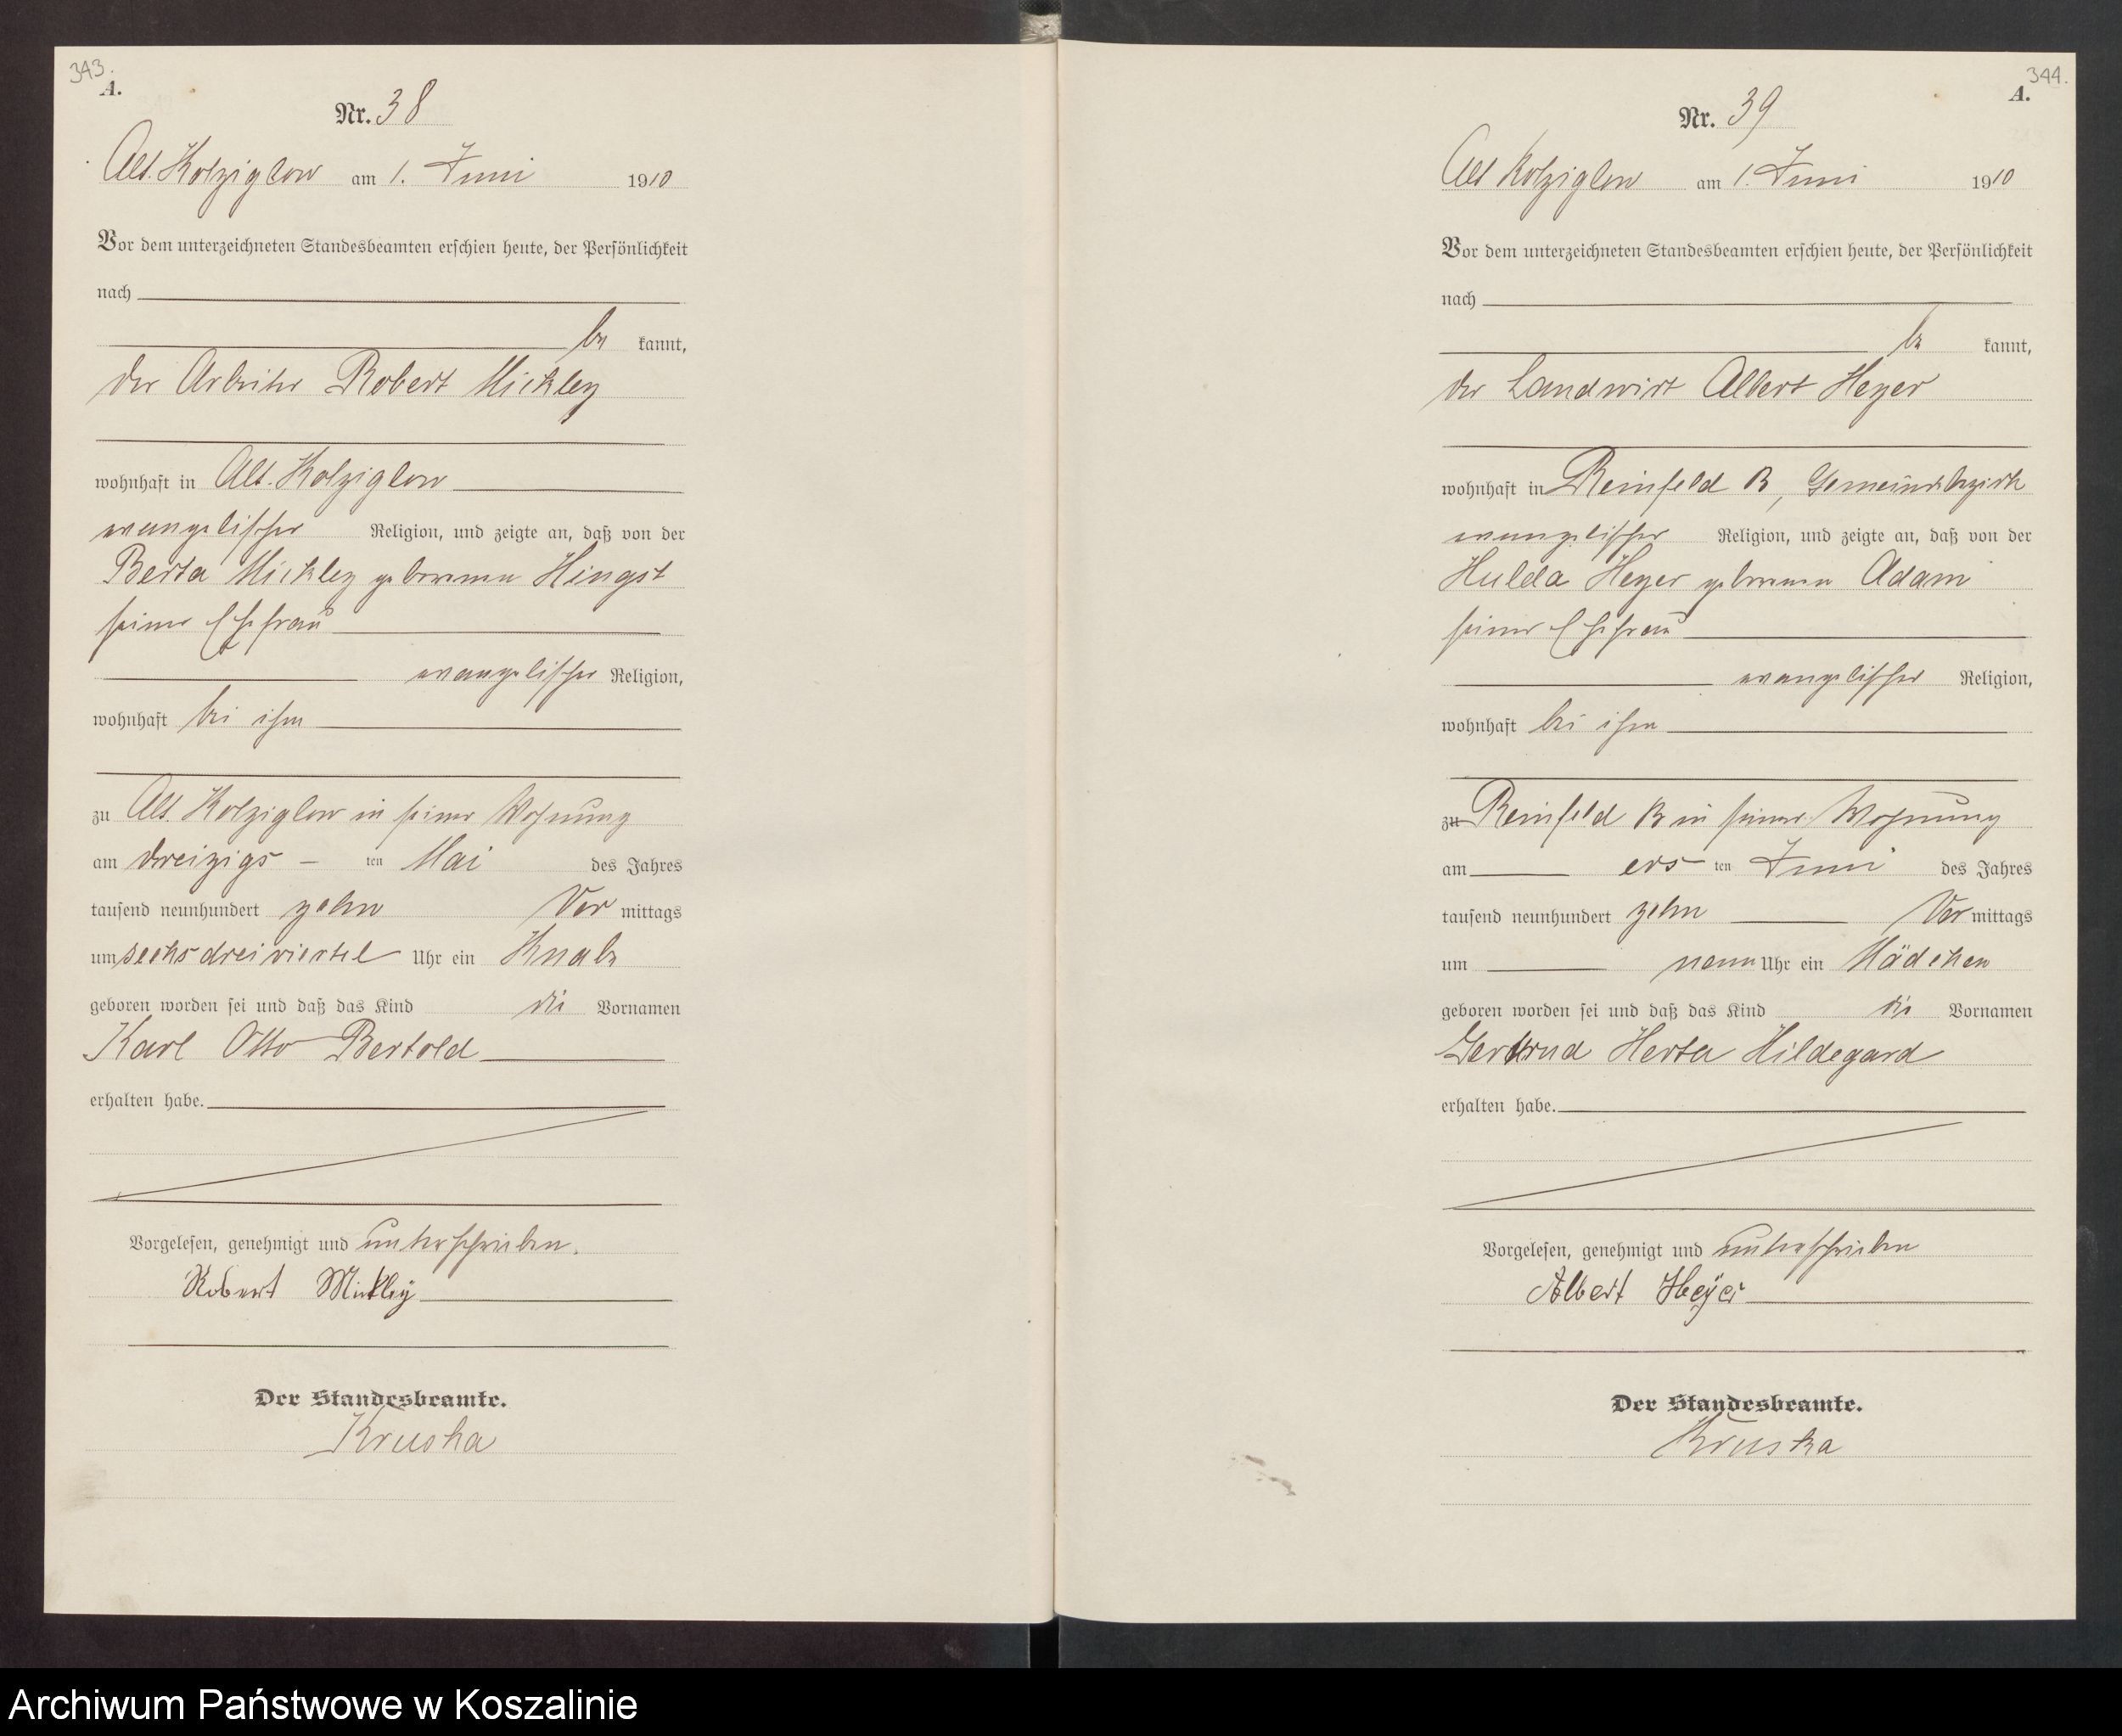 343.
A.
Nr. 38
Alt. Kolziglow am 1. Juni 1910
Vor dem unterzeichneten Standesbeamten erschien heute, der Persönlichkeit
nach
be kannt,
der Arbeiter Robert Mickley
wohnhaft in Alt. Kolziglow
evangelischer Religion, und zeigte an, daß von der
Berta Mickley geborenen Hingst
seiner Ehefrau
evangelischer Religion,
wohnhaft bei ihm
zu Alt. Kolziglow in seiner Wohnung
am dreizigs - ten Mai des Jahres
tausend neunhundert zehn Vor mittags
um sechs dreiviertel Uhr ein Knabe
geboren worden sei und daß das Kind die Vornamen
Karl Otto Bertold
erhalten habe.
Vorgelesen, genehmigt und unterschrieben.
Robert Mickley
Der Standesbeamte.
Kruska
344.
A.
Nr. 39
Alt Kolziglow am 1. Juni 1910
Vor dem unterzeichneten Standesbeamten erschien heute, der Persönlichkeit
nach
be kannt,
der Landwirt Albert Heyer
wohnhaft in Reinfeld B, Gemeindebezirk
evangelischer Religion, und zeigte an, daß von der
Hulda Heyer geborenen Adam
seiner Ehefrau
evangelischer Religion,
wohnhaft bei ihm
zu Reinfeld B in seiner Wohnung
am ers ten Juni des Jahres
tausend neunhundert zehn Vor mittags
um neun Uhr ein Mädchen
geboren worden sei und daß das Kind die Vornamen
Gertrud Herta Hildegard
erhalten habe.
Vorgelesen, genehmigt und unterschrieben
Albert Heyer
Der Standesbeamte.
Kruska
Archiwum Państwowe w Koszalinie